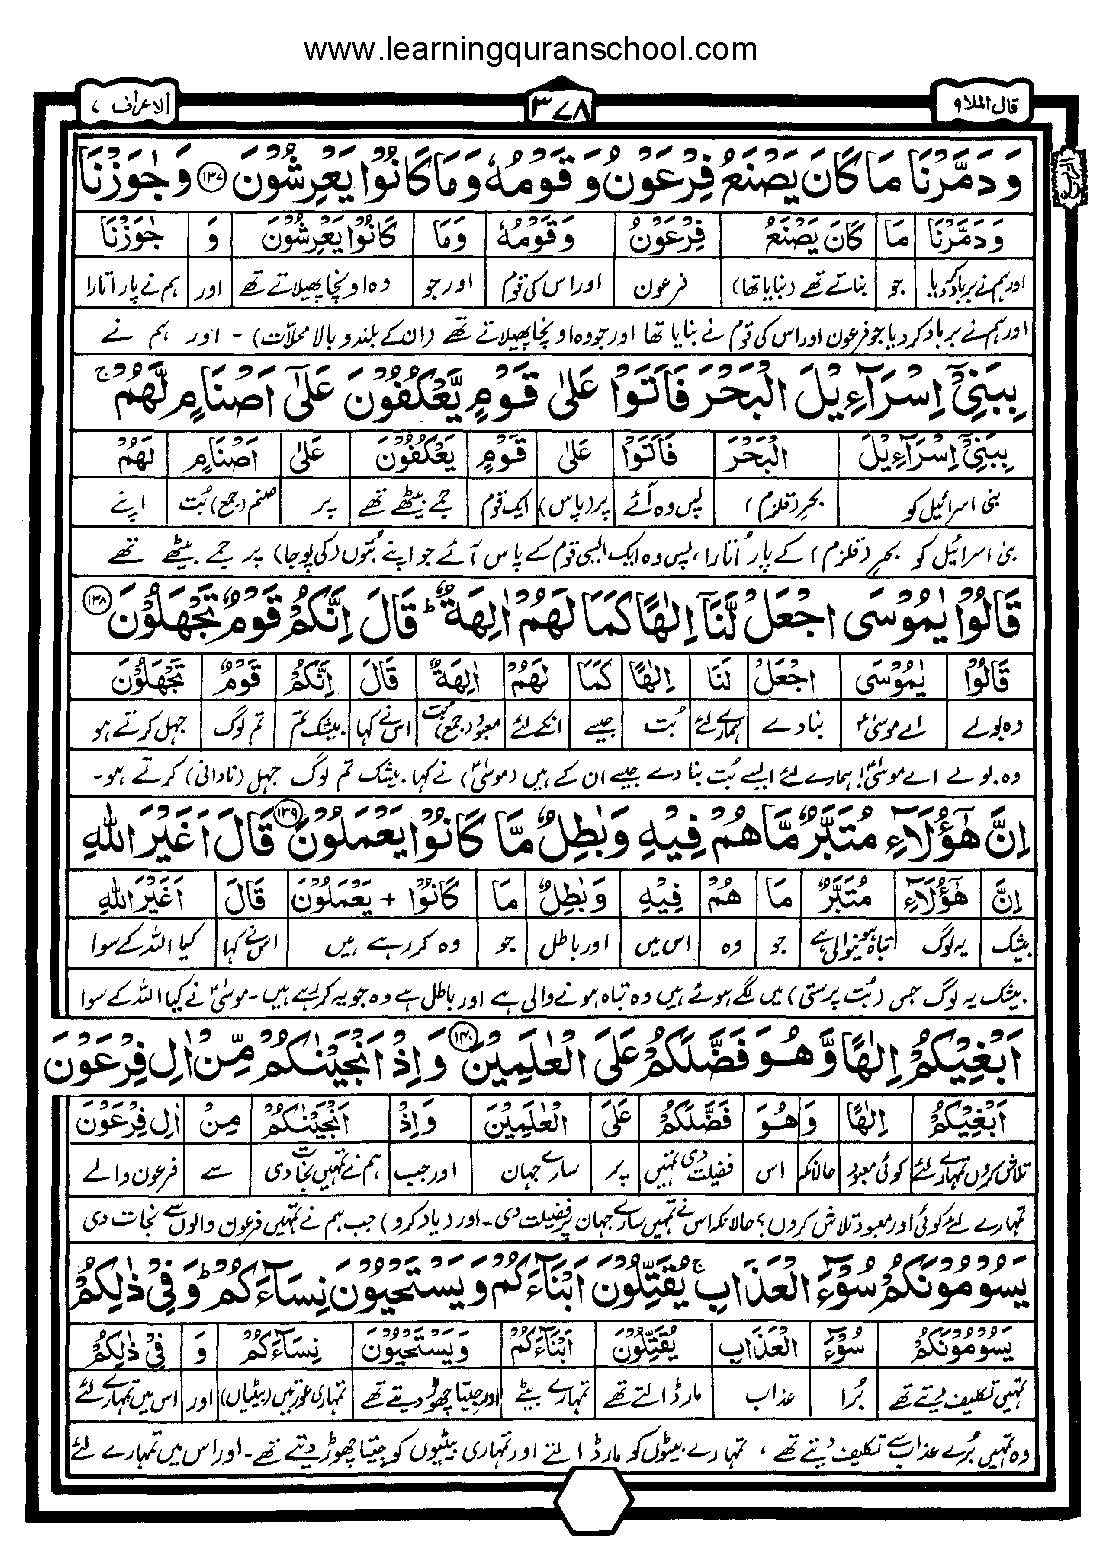 www.learningquranschool.com
قال الملا ۹
۳۷۸
الاعراف ۷
وَدَمَّرْنَا مَا كَانَ يَصْنَعُ فِرْعَوْنُ وَقَوْمُهٗ وَمَا كَانُوْا يَعْرِشُوْنَ ﴿۱۳۷﴾ وَجٰوَزْنَا
وَدَمَّرْنَا مَا كَانَ يَصْنَعُ فِرْعَوْنُ وَقَوْمُهٗ وَمَا كَانُوْا يَعْرِشُوْنَ وَ جٰوَزْنَا
اور ہم نے برباد کردیا جو بناتے تھے (بنایا تھا) فرعون اور اس کی قوم اور جو وہ اونچا پھیلاتے تھے اور ہم نے پار اتارا
اور ہم نے برباد کر دیا جو فرعون اور اس کی قوم نے بنایا تھا اور جو وہ اونچا پھیلاتے تھے (ان کے بلند و بالا محلات) - اور ہم نے
بِبَنِيْٓ اِسْرَآءِيْلَ الْبَحْرَ فَاَتَوْا عَلٰى قَوْمٍ يَّعْكُفُوْنَ عَلٰٓى اَصْنَامٍ لَّهُمْ ۚ
بِبَنِيْٓ اِسْرَآءِيْلَ الْبَحْرَ فَاَتَوْا عَلٰى قَوْمٍ يَعْكُفُوْنَ عَلٰٓى اَصْنَامٍ لَهُمْ
بنی اسرائیل کو بحر (قلزم) پس وہ آئے پر (پاس) ایک قوم جمے بیٹھے تھے پر صنم (جمع) بت اپنے
بنی اسرائیل کو بحر (قلزم) کے پار اتارا، پس وہ ایک ایسی قوم کے پاس آئے جو اپنے بتوں (کی پوجا) پر جمے بیٹھے تھے
قَالُوْا يٰمُوْسَى اجْعَلْ لَّنَآ اِلٰهًا كَمَا لَهُمْ اٰلِهَةٌ ؕ قَالَ اِنَّكُمْ قَوْمٌ تَجْهَلُوْنَ ﴿۱۳۸﴾
قَالُوْا يٰمُوْسَى اجْعَلْ لَنَا اِلٰهًا كَمَا لَهُمْ اٰلِهَةٌ قَالَ اِنَّكُمْ قَوْمٌ تَجْهَلُوْنَ
وہ بولے اے موسیٰ بنا دے ہمارے لئے بت جیسے انکے لئے معبود (جمع) بت اس نے کہا بیشک تم تم لوگ جہل کرتے ہو
وہ بولے اے موسیٰ! ہمارے لئے ایسے بت بنا دے جیسے ان کے ہیں (موسیٰ) نے کہا بیشک تم لوگ جہل (نادانی) کرتے ہو-
اِنَّ هٰٓؤُلَآءِ مُتَبَّرٌ مَّا هُمْ فِيْهِ وَبٰطِلٌ مَّا كَانُوْا يَعْمَلُوْنَ ﴿۱۳۹﴾ قَالَ اَغَيْرَ اللّٰهِ
اِنَّ هٰٓؤُلَآءِ مُتَبَّرٌ مَا هُمْ فِيْهِ وَبٰطِلٌ مَا كَانُوْا + يَعْمَلُوْنَ قَالَ اَغَيْرَ اللّٰهِ
بیشک یہ لوگ تباہ ہونیوالی ہے جو وہ اس میں اور باطل جو وہ کر رہے ہیں اس نے کہا کیا اللہ کے سوا
بیشک یہ لوگ جس (بت پرستی) میں لگے ہوئے ہیں وہ تباہ ہونے والی ہے اور باطل ہے وہ جو یہ کر رہے ہیں - موسیٰ نے کہا کیا اللہ کے سوا
اَبْغِيْكُمْ اِلٰهًا وَّهُوَ فَضَّلَكُمْ عَلَى الْعٰلَمِيْنَ ﴿۱۴۰﴾ وَاِذْ اَنْجَيْنٰكُمْ مِّنْ اٰلِ فِرْعَوْنَ
اَبْغِيْكُمْ اِلٰهًا وَهُوَ فَضَّلَكُمْ عَلَى الْعٰلَمِيْنَ وَاِذْ اَنْجَيْنٰكُمْ مِنْ اٰلِ فِرْعَوْنَ
تلاش کروں تمہارے لئے کوئی معبود حالانکہ اس فضیلت دی تمہیں پر سارے جہان اور جب ہم نے تمہیں نجات دی سے فرعون والے
تمہارے لئے کوئی اور معبود تلاش کروں؟ حالانکہ اس نے تمہیں سارے جہان پر فضیلت دی - اور (یاد کرو) جب ہم نے تمہیں فرعون والوں سے نجات دی
يَسُوْمُوْنَكُمْ سُوْٓءَ الْعَذَابِ ۚ يُقَتِّلُوْنَ اَبْنَآءَكُمْ وَيَسْتَحْيُوْنَ نِسَآءَكُمْ ؕ وَفِيْ ذٰلِكُمْ
يَسُوْمُوْنَكُمْ سُوْٓءَ الْعَذَابِ يُقَتِّلُوْنَ اَبْنَآءَكُمْ وَيَسْتَحْيُوْنَ نِسَآءَكُمْ وَ فِيْ ذٰلِكُمْ
تمہیں تکلیف دیتے تھے بُرا عذاب مار ڈالتے تھے تمہارے بیٹے اور جیتا چھوڑ دیتے تھے تمہاری عورتیں (بیٹیاں) اور اس میں تمہارے لئے
وہ تمہیں بُرے عذاب سے تکلیف دیتے تھے، تمہارے بیٹوں کو مار ڈالتے اور تمہاری بیٹیوں کو جیتا چھوڑ دیتے تھے - اور اس میں تمہارے لئے